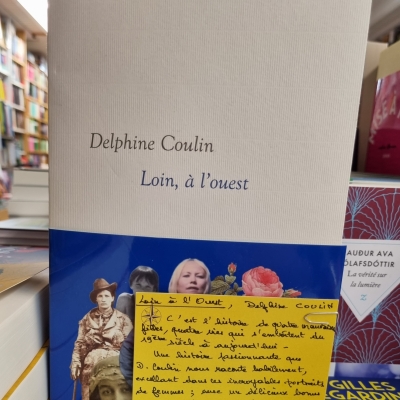 Delphine Coulin
Loin, à l'ouest
Loin à l'Ouest, Delphine COULIN
C'est l'histoire de quatre mauvaises
filles, quatre vies qui s'emboîtent du
19ème siècle à aujourd'hui.
Une histoire passionnante que
D. Coulin nous raconte habilement,
excellant dans ces incroyables portraits
de femmes ; avec un délicieux bonus
AUÐUR AVA
ÓLAFSDÓTTIR
La vérité sur
la lumière
Z
GILLES